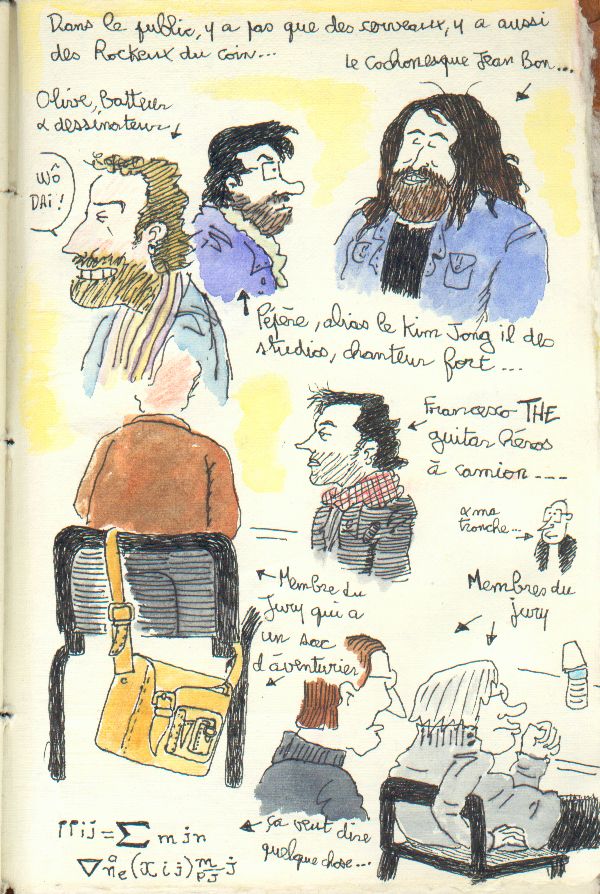 Dans le public, y a pas que des cerveaux, y a aussi
des Rockeux du coin...
le cochonesque Jean Bon...
Olive, batteur
& dessinateur
WÔ
DAI !
Péjène, alias le Kim Jong il des
studios, chanteur fort...
Francesco THE
guitar héros
à camion....
& ma
tronche...
Membre du
Jury qui a
un sac
d'aventurier
Membres du
jury
ça veut dire
quelque chose...